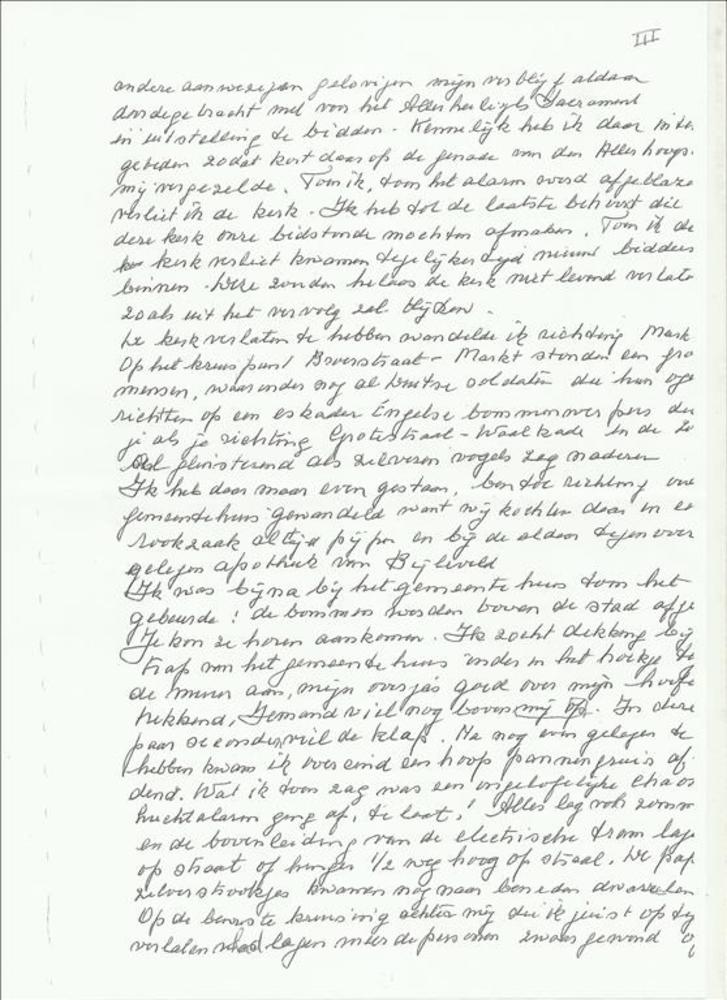 III
andere aanwezigen gelovigen mijn verblijf aldaar
doorgebracht met voor het Allerheiligste Sacrament
in uitstelling te bidden. Kennelijk heb ik daar
gebeden zodat kort daarop de genade van den Allerhoogs
mij vergezelde. Toen ik, toen het alarm werd afgeblaze
verliet ik de kerk. Ik heb tot de laatste behoort die
deze kerk onze bidstonde mochten afmaken. Toen ik de
kerk verliet kwamen tegelijkertijd nieuwe bidders
binnen. Deze zouden helaas de kerk niet levend verlate
zoals uit het vervolg zal blijken.
De kerk verlaten te hebben wandelde ik richting Mark
Op het kruispunt Broerstraat - Markt stonden een gro
mensen, waaronder nog al Duitse soldaten die hun oge
richtten op een eskader Engelse bommenwerpers die
je als je richting Grotestraat - Waalkade in de
glinsterend als zilveren vogels zag naderen
Ik heb daar maar even gestaan, ben toe richting
gemeentehuis gewandeld want wij kochten daar in
rookzaak altijd pijpen en bij de aldaar tegenover
gelegen apotheek van Bijleveld
Ik was bijna bij het gemeentehuis toen het
gebeurde! de bommen werden boven de stad afge
Je kon ze horen aankomen. Ik zocht dekking bij
trap van het gemeentehuis onder in het hoekje
de muur aan, mijn overjas goed over mijn hoofd
trekkend, Iemand viel nog boven mij op. In deze
paar seconden viel de klap. Na nog even gelegen te
hebben kwam ik overeind een hoop pannengruis af
dend. Wat ik toen zag was een ongelofelijke chaos
luchtalarm ging af, te laat! Alles lag
en de bovenleiding van de electrische tram lag
op straat of hingen 1/2 weg hoog op straat. De pap
zilverstrookjes kwamen nog naar beneden dwarrelen
Op de bewuste kruising achter mij die ik juist op
verlaten had lagen meerdere personen zwaar gewond